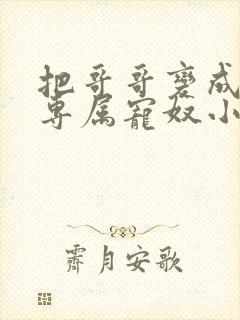 把哥哥变成
专属宠奴小
霁月安歌